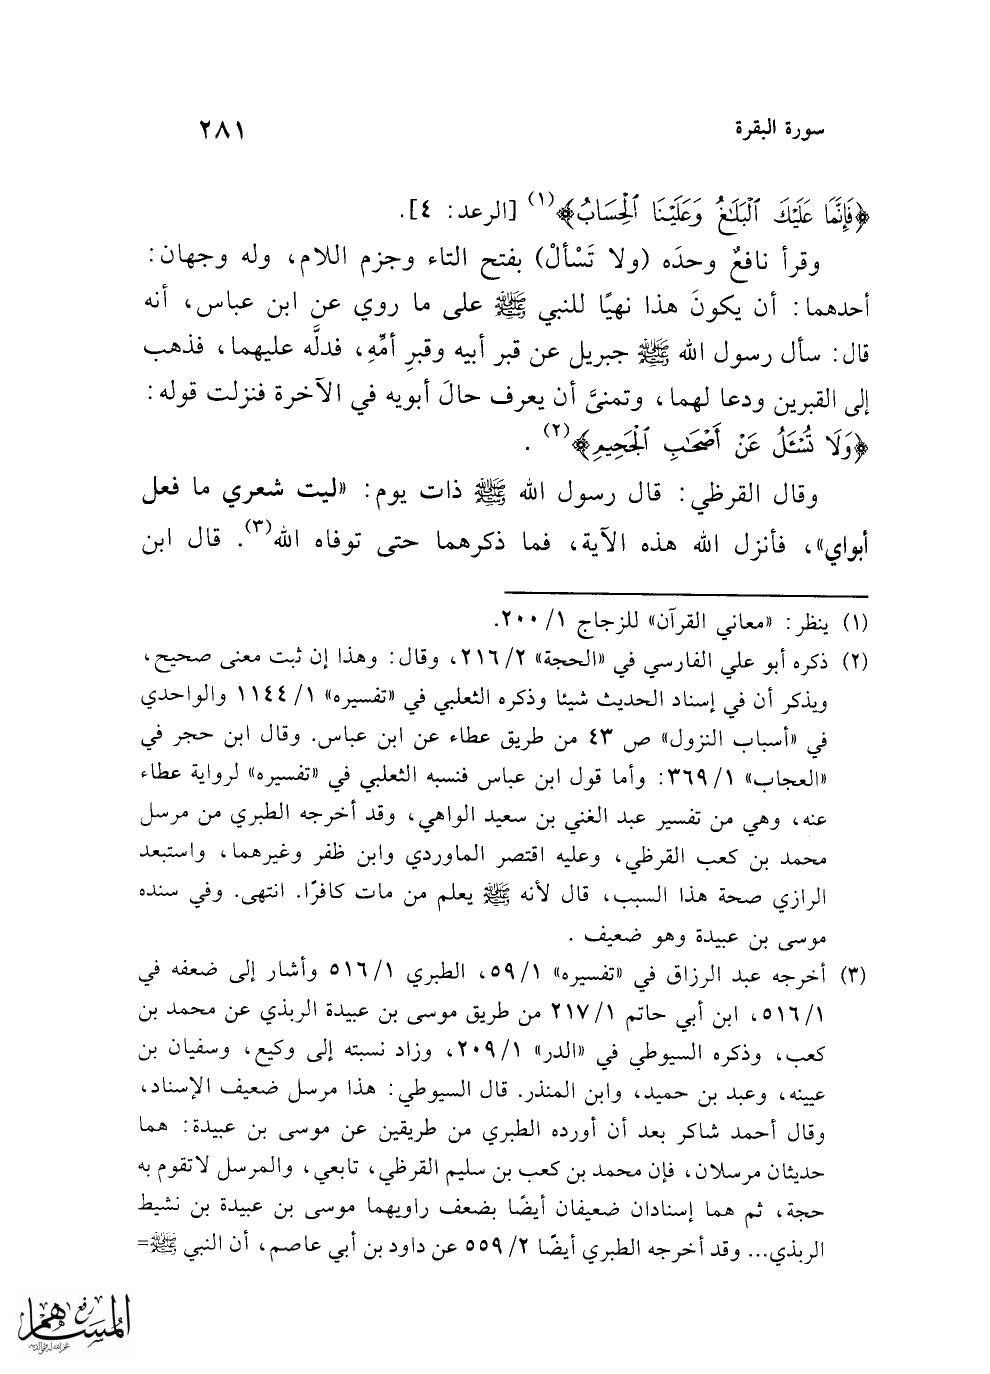 سورة البقرة ٢٨١
﴿فَإِنَّمَا عَلَيْكَ الْبَلَاغُ وَعَلَيْنَا الْحِسَابُ﴾(١) [الرعد: ٤].
وقرأ نافعٌ وحدَه (ولا تَسْألْ) بفتح التاء وجزم اللام، وله وجهان:
أحدهما: أن يكونَ هذا نهيًا للنبي ﷺ على ما روي عن ابن عباس، أنه
قال: سأل رسول الله ﷺ جبريل عن قبر أبيه وقبرِ أمِّهِ، فدلَّه عليهما، فذهب
إلى القبرين ودعا لهما، وتمنىَّ أن يعرف حالَ أبويه في الآخرة فنزلت قوله:
﴿وَلَا تُسْئَلُ عَنْ أَصْحَابِ الْجَحِيمِ﴾(٢).
وقال القرظي: قال رسول الله ﷺ ذات يوم: «ليت شعري ما فعل
أبواي»، فأنزل الله هذه الآية، فما ذكرهما حتى توفاه الله(٣). قال ابن
(١) ينظر: «معاني القرآن» للزجاج ١/ ٢٠٠.
(٢) ذكره أبو علي الفارسي في «الحجة» ٢/ ٢١٦، وقال: وهذا إن ثبت معنى صحيح،
ويذكر أن في إسناد الحديث شيئا وذكره الثعلبي في «تفسيره» ١/ ١١٤٤ والواحدي
في «أسباب النزول» ص ٤٣ من طريق عطاء عن ابن عباس. وقال ابن حجر في
«العجاب» ١/ ٣٦٩: وأما قول ابن عباس فنسبه الثعلبي في «تفسيره» لرواية عطاء
عنه، وهي من تفسير عبد الغني بن سعيد الواهي، وقد أخرجه الطبري من مرسل
محمد بن كعب القرظي، وعليه اقتصر الماوردي وابن ظفر وغيرهما، واستبعد
الرازي صحة هذا السبب، قال لأنه ﷺ يعلم من مات كافرًا. انتهى. وفي سنده
موسى بن عبيدة وهو ضعيف .
(٣) أخرجه عبد الرزاق في «تفسيره» ١/ ٥٩، الطبري ١/ ٥١٦ وأشار إلى ضعفه في
١/ ٥١٦، ابن أبي حاتم ١/ ٢١٧ من طريق موسى بن عبيدة الربذي عن محمد بن
كعب، وذكره السيوطي في «الدر» ١/ ٢٠٩، وزاد نسبته إلى وكيع، وسفيان بن
عيينه، وعبد بن حميد، وابن المنذر. قال السيوطي: هذا مرسل ضعيف الإسناد،
وقال أحمد شاكر بعد أن أورده الطبري من طريقين عن موسى بن عبيدة: هما
حديثان مرسلان، فإن محمد بن كعب بن سليم القرظي، تابعي، والمرسل لاتقوم به
حجة، ثم هما إسنادان ضعيفان أيضًا بضعف راويهما موسى بن عبيدة بن نشيط
الربذي... وقد أخرجه الطبري أيضًا ٢/ ٥٥٩ عن داود بن أبي عاصم، أن النبي ﷺ=
رفع
المساهم